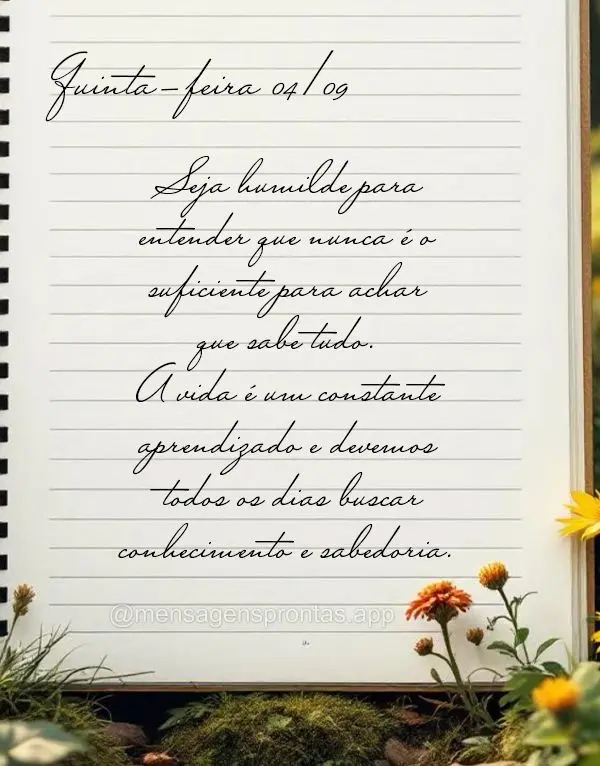 Quinta-feira 04/09
Seja humilde para
entender que nunca é o
suficiente para achar
que sabe tudo.
A vida é um constante
aprendizado e devemos
todos os dias buscar
conhecimento e sabedoria.
@mensagensprontas.app